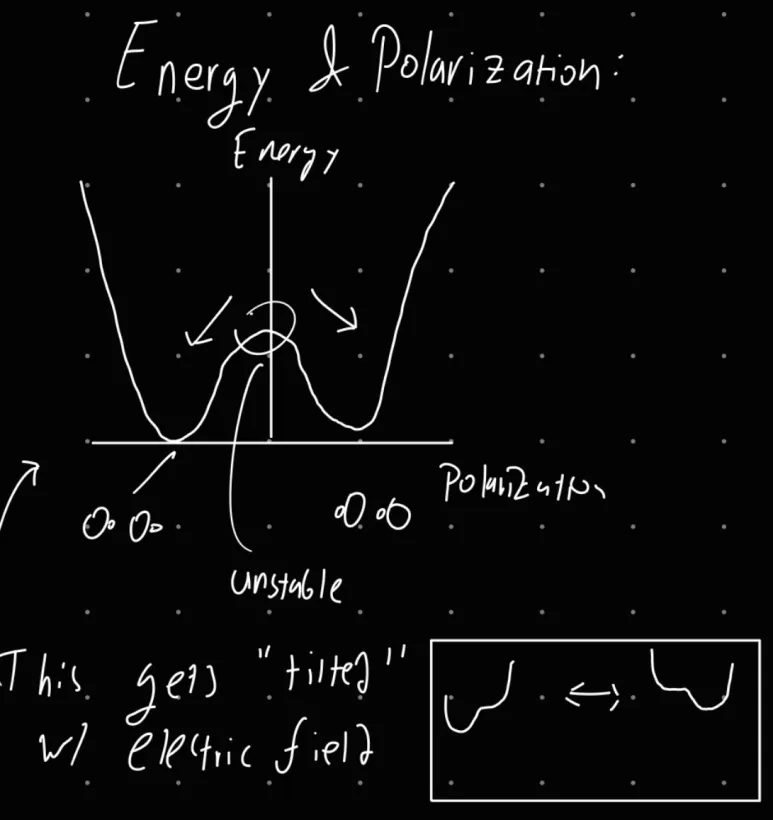 Energy & Polarization:
Energy
Polarization
unstable
This gets "tilted"
w/ electric field